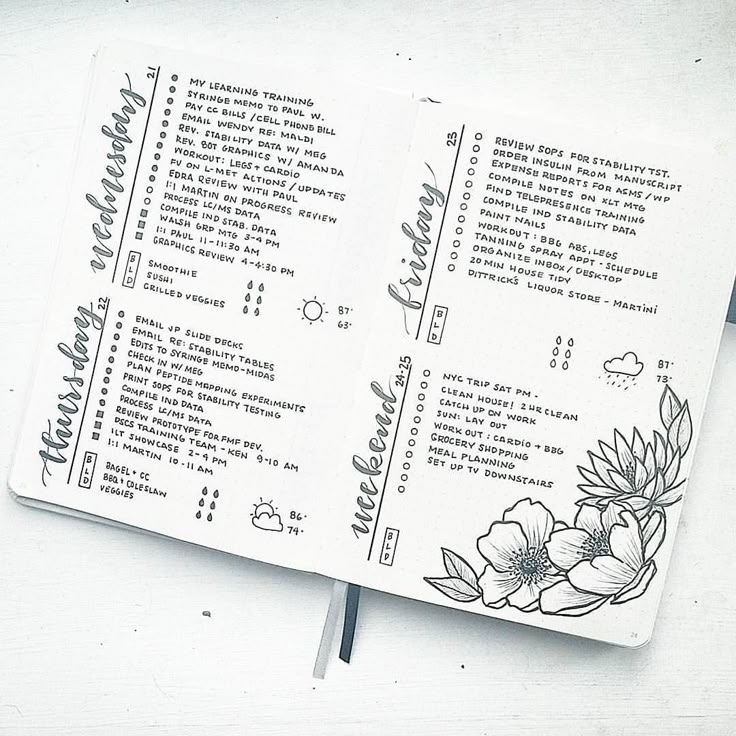 wednesday
21
MY LEARNING TRAINING
SYRINGE MEMO TO PAUL W.
PAY CC BILLS / CELL PHONE BILL
EMAIL WENDY RE: MALDI
REV. STABILITY DATA W/ MEG
REV. BOT GRAPHICS W/ AMANDA
WORKOUT: LEGS + CARDIO
FU ON L-MET ACTIONS / UPDATES
EDRA REVIEW WITH PAUL
1:1 MARTIN ON PROGRESS REVIEW
PROCESS LC/MS DATA
COMPILE IND STAB. DATA
WALSH GRP MTG 3-4 PM
1:1 PAUL 11-11:30 AM
GRAPHICS REVIEW 4-4:30 PM
B SMOOTHIE
L SUSHI
D GRILLED VEGGIES
87°
63°
thursday
22
EMAIL VP SLIDE DECKS
EMAIL RE: STABILITY TABLES
EDITS TO SYRINGE MEMO-MIDAS
CHECK IN W/ MEG
PLAN PEPTIDE MAPPING EXPERIMENTS
PRINT SOPS FOR STABILITY TESTING
COMPILE IND DATA
PROCESS LC/MS DATA
REVIEW PROTOTYPE FOR FMF DEV.
DSCS TRAINING TEAM - KEN 9-10 AM
ILT SHOWCASE 2-4 PM
1:1 MARTIN 10-11 AM
B BAGEL + CC
L BBQ + COLESLAW
D VEGGIES
86°
74°
friday
23
REVIEW SOPS FOR STABILITY TST.
ORDER INSULIN FROM MANUSCRIPT
EXPENSE REPORTS FOR ASMS / WP
COMPILE NOTES ON XLT MTG
FIND TELEPRESENCE TRAINING
COMPILE IND STABILITY DATA
PAINT NAILS
WORKOUT: BBG ABS, LEGS
TANNING SPRAY APPT - SCHEDULE
ORGANIZE INBOX / DESKTOP
20 MIN HOUSE TIDY
DITTRICK'S LIQUOR STORE - MARTINI
B
L
D
87°
73°
weekend
24-25
NYC TRIP SAT PM -
CLEAN HOUSE! 2 HR CLEAN
CATCH UP ON WORK
SUN: LAY OUT
WORK OUT: CARDIO + BBG
GROCERY SHOPPING
MEAL PLANNING
SET UP TV DOWNSTAIRS
B
L
D